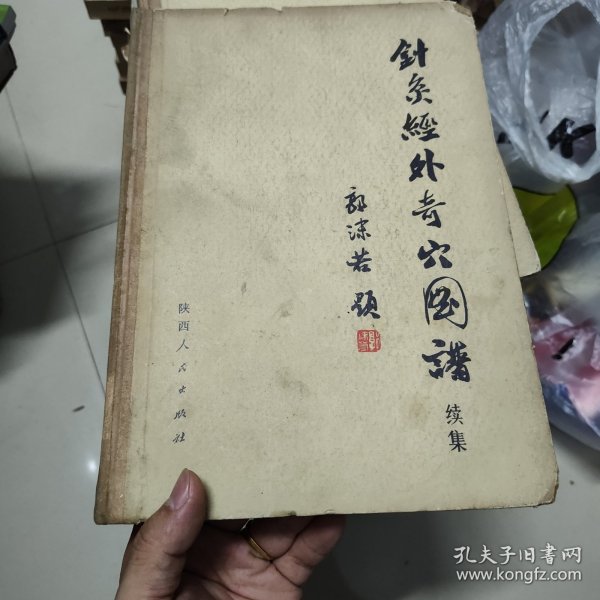 針灸經外奇穴图譜
续集
郭沫若 题
陕西人民出版社
孔夫子旧书网
www.kongfz.com